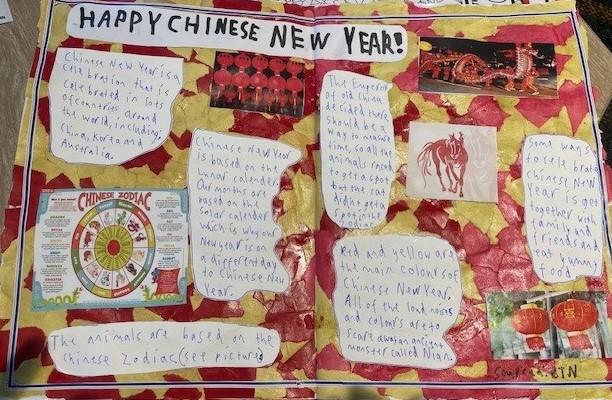 HAPPY CHINESE NEW YEAR!
Chinese New Year is a
celebration that is
celebrated in lots
of countries around
the world, including;
China, Korea and
Australia.
Chinese New Year
is based on the
lunar calender.
Our months are
based on the
solar calender
which is why our
New year is on
a different day
to Chinese New
Year.
CHINESE ZODIAC
The animals are based on the
chinese Zodiac (see picture)
The Emperor
of old China
decided there
should be a
way to measure
time, so all the
animals raced
to get a spot
but the cat
didn't get a
spot in the
zodiac
Red and yellow are
the main colours of
Chinese New Year.
All of the loud noises
and colours are to
scare away an ancient
monster called Nian.
Some ways
to celebrate
Chinese New
Year is get
together with
family and
friends and
eat yummy
food.